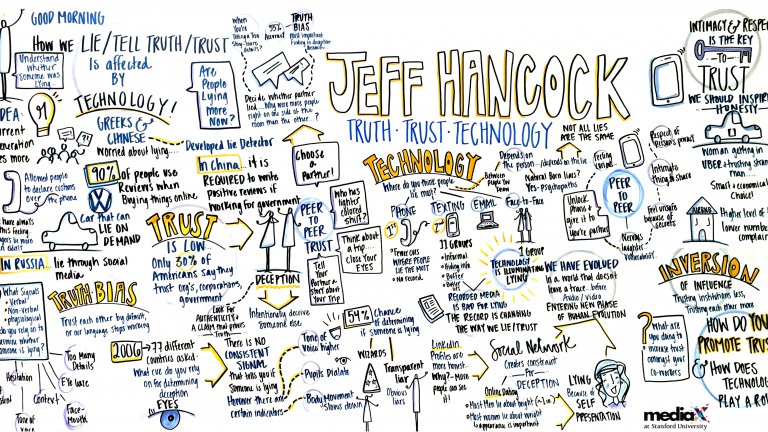 GOOD MORNING
HOW WE LIE/TELL TRUTH/TRUST
Is affected
BY
TECHNOLOGY!
Understand
whether
someone was
lying
When
You're
Accuracy
TRUTH
BIAS
most important
Finding in deception
Are
People
Lying
more
Now?
Decide whether partner
lied.
Why more more people
right on one side of the
room than the other?
JEFF HANCOCK
TRUTH · TRUST · TECHNOLOGY
INTIMACY & RESPECT
IS THE KEY
TO
TRUST
WE SHOULD INSPIRE
HONESTY
GREEKS &
CHINESE
Worried about lying...
Developed lie Detector
90% of people use
Reviews when
Buying things online
In China, it is
REQUIRED to write
Positive reviews if
working for government
Choose
a
Partner!
Allowed people
to declare customs
over the phone
Car that can
LIE ON
DEMAND
IN RUSSIA lie through Social
media
TRUST
IS LOW
Only 30% of
Americans say they
trust org's, corporations,
government
PEER
TO
PEER
TRUST
Who has
lighter
colored
shirt?
Think about
a trip
Close Your
EYES
Tell
Your
Partner a
story about
Your Trip
DECEPTION
Intentionally deceive
Someone else
Look For
AUTHENTICITY &
TECHNOLOGY
Where do most people
lie most?
Depends on
The person
Between People
/depends on the lie
Natural Born liars?
Yes - psychopaths
NOT ALL LIES
ARE THE SAME
PHONE
TEXTING
EMAIL
Face-to-Face
1st
2nd
Fewer cues
WHERE PEOPLE
LIE THE MOST
No record
11 GROUPS
Informal
Buffer
1 Group
TECHNOLOGY
IS ILLUMINATING
LYING
RECORDED MEDIA
IS BAD FOR LYING
THE RECORD IS CHANGING
THE WAY WE LIE/TRUST
WE HAVE EVOLVED
in a world that doesn't
leave a trace before
Audio/video
ENTERING NEW PHASE
OF HUMAN EVOLUTION
Unlock
Phone &
give it to
you're
partner
PEER
TO
PEER
Respect of
Person's privacy
Intimate
Thing to Share
Feel unsafe
because of
secrets
Nervous
Woman getting in
UBER & trusting
AIRBNB
INVERSION
OF INFLUENCE
Trusting institutions less,
Trusting each other more
What are
you doing to
increase trust
amongst your
co-workers
HOW DO YOU
PROMOTE TRUST
& HOW DOES
TECHNOLOGY
PLAY A
What Signals
Verbal
Non-verbal
TRUTH BIAS
Trust each other by default,
or our language stops working
Too Many
Details
Eye Gaze
Hesitation
Context
Tone of
Voice
2006
77 different
countries asked:
What eve do you rely
on for determining
deception
EYES
THERE IS NO
CONSISTENT
SIGNAL
that tells you if
Someone is lying
However there are
certain indicators
Tone of
Voice higher
Pupils Dialate
Body Movement
Slows down
54%
Chance
of determining
if someone is lying
WIZARDS
Transparent
liar
Obvious
liars
Linkedin
Profiles are
more honest
Why? - More
people can
see it!
Social Network
Creates constraint
DECEPTION
Online Dating
Most Men lie about height
Most women lie about weight
appearance is important
LYING
Because of
SELF
PRESENTATION
mediaX
at Stanford University